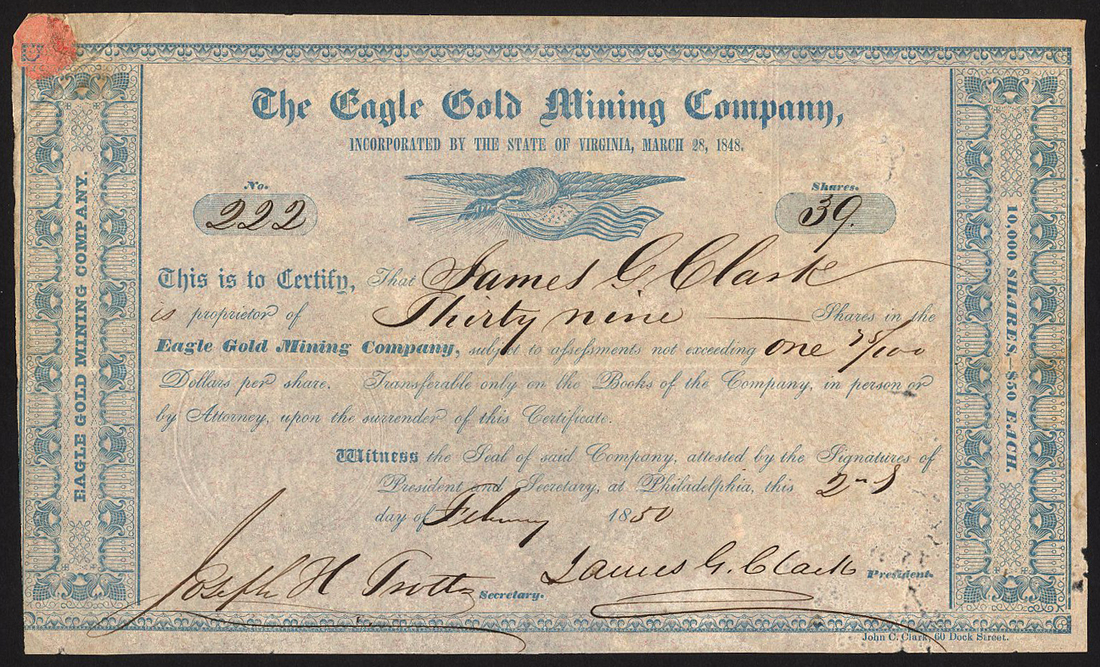 The Eagle Gold Mining Company,
INCORPORATED BY THE STATE OF VIRGINIA, MARCH 28, 1848.
No.
222
Shares.
39.
This is to Certify, That James G Clark
is proprietor of Thirty nine Shares in the
Eagle Gold Mining Company, subject to assessments not exceeding one 75/100
Dollars per share. Transferable only on the Books of the Company, in person or
by Attorney, upon the surrender of this Certificate.
Witness the Seal of said Company, attested by the Signatures of
President and Secretary, at Philadelphia, this 2nd
day of February 1850
Joseph H Trotter Secretary.
James G. Clark President.
EAGLE GOLD MINING COMPANY.
10,000 SHARES, $50 EACH.
John C. Clark, 60 Dock Street.